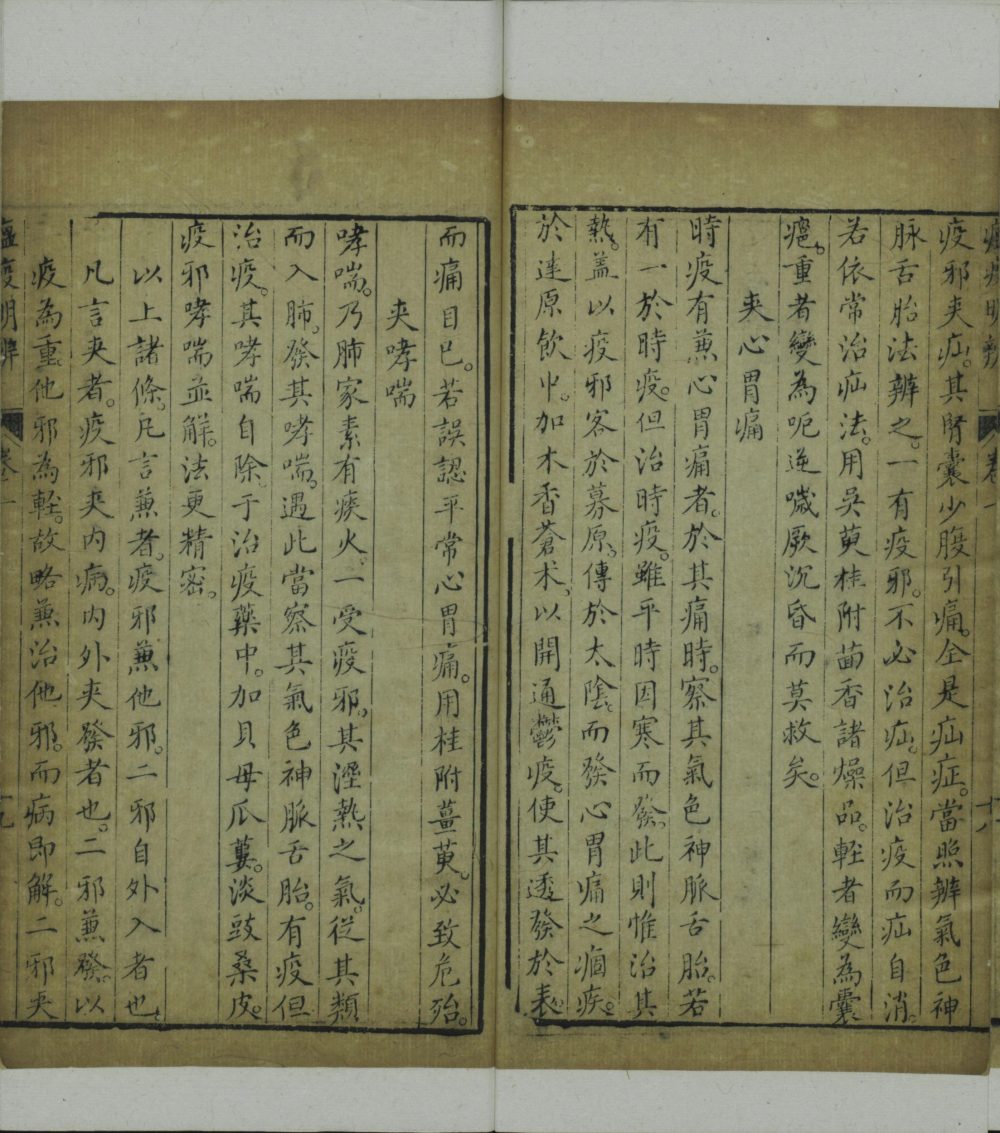 疫邪夾疝。其腎囊少腹引痛。全是疝症。當照辨氣色神
脉舌胎法辨之。一有疫邪。不必治疝。但治疫而疝自消。
若依常治疝法。用吳萸桂附茴香諸燥品。輕者變為囊
癰。重者變為呃逆噦厥沉昏而莫救矣。
夾心胃痛
時疫有兼心胃痛者。於其痛時。察其氣色神脈舌胎。若
有一於時疫。但治時疫。雖平時因寒而發。此則惟治其
熱。盖以疫邪客於募原。傳於太陰。而發心胃痛之痼疾。
於達原飲中。加木香蒼术。以開通鬱疫。使其透發於表。
而痛自已。若誤認平常心胃痛。用桂附薑萸。必致危殆。
夾哮喘
哮喘。乃肺家素有痰火。一受疫邪。其溼熱之氣。從其類
而入肺。發其哮喘。遇此當察其氣色神脈舌胎。有疫但
治疫。其哮喘自除。于治疫藥中。加貝母瓜蔞。淡豉桑皮。
疫邪哮喘並解。法更精密。
以上諸條。凡言兼者。疫邪兼他邪。二邪自外入者也。
凡言夾者。疫邪夾内病。内外夾發者也。二邪兼發。以
疫為重。他邪為輕。故略兼治他邪。而病即解。二邪夾
瘟疫明辨
卷一